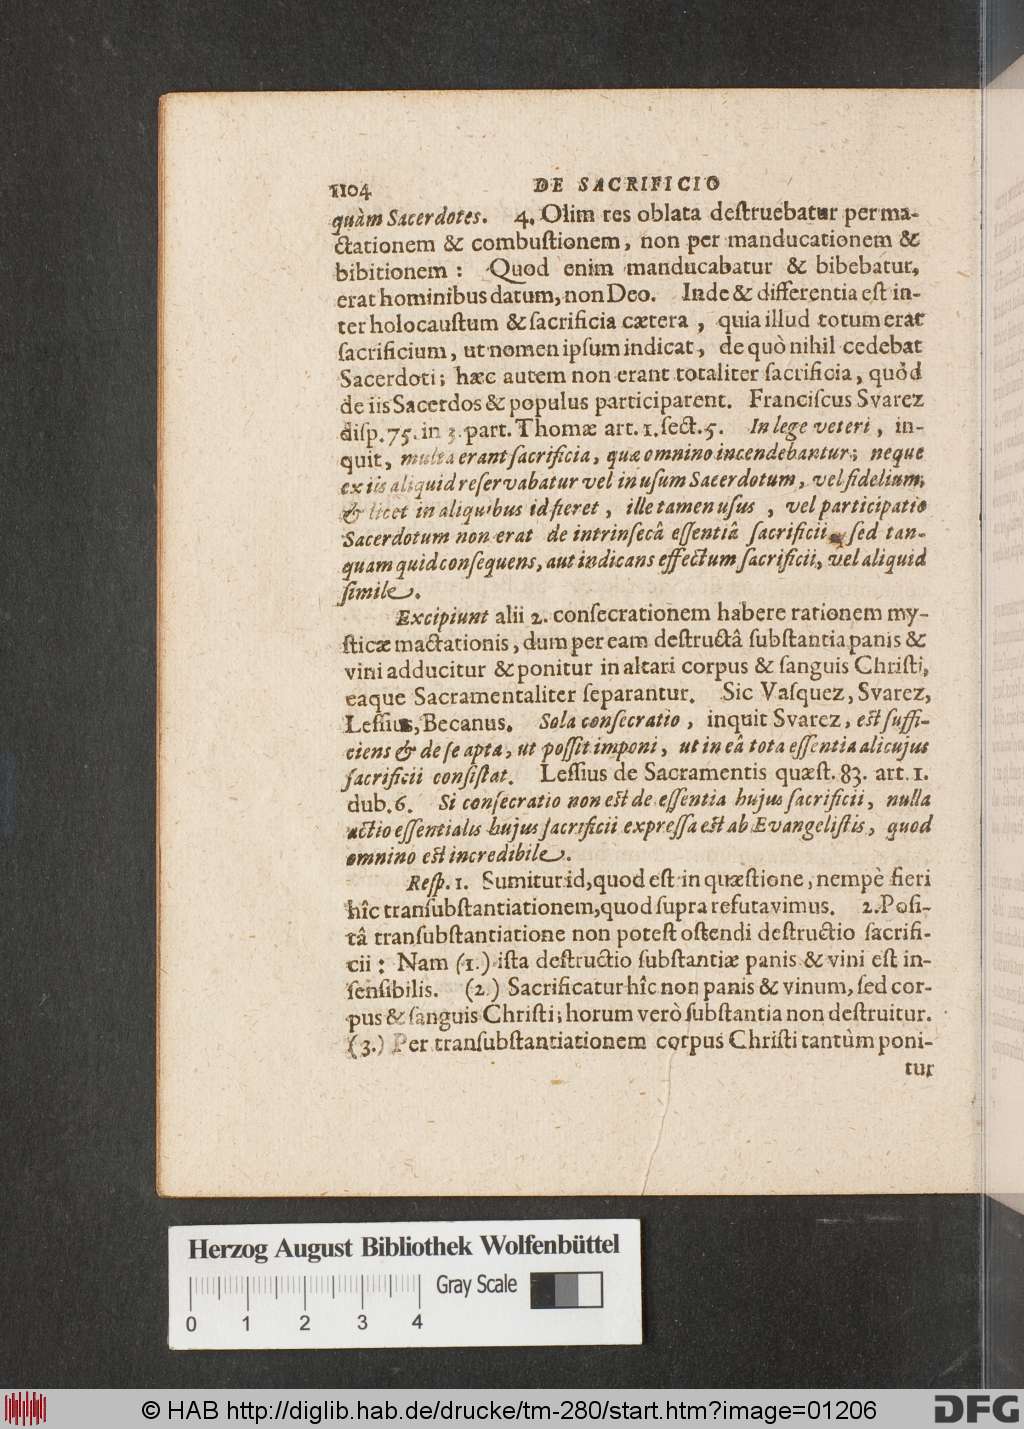 1104 DE SACRIFICIO
quàm Sacerdotes. 4. Olim res oblata deſtruebatur per ma-
ctationem & combuſtionem, non per manducationem &
bibitionem : Quod enim manducabatur & bibebatur,
erat hominibus datum, non Deo. Inde & differentia eſt in-
ter holocauſtum & ſacrificia cætera , quia illud totum erat
ſacrificium, ut nomen ipſum indicat, de quò nihil cedebat
Sacerdoti; hæc autem non erant totaliter ſacrificia, quòd
de iis Sacerdos & populus participarent. Franciſcus Svarez
diſp. 75. in 3. part. Thomæ art. 1. ſect. 5. In lege veteri , in-
quit, multa erant ſacrificia, quæ omnino incendebantur; neque
ex iis aliquid reſervabatur vel in uſum Sacerdotum, vel fidelium;
& licet in aliquibus id fieret , ille tamen uſus , vel participatio
Sacerdotum non erat de intrinſecâ eſſentiâ ſacrificii, ſed tan-
quam quid conſequens, aut indicans effectum ſacrificii, vel aliquid
ſimile.
Excipiunt alii 2. conſecrationem habere rationem my-
ſticæ mactationis, dum per eam deſtructâ ſubſtantia panis &
vini adducitur & ponitur in altari corpus & ſanguis Chriſti,
eaque Sacramentaliter ſeparantur. Sic Vaſquez, Svarez,
Leſſius, Becanus. Sola conſecratio , inquit Svarez, eſt ſuffi-
ciens & de ſe apta, ut poſſit imponi, ut in eâ tota eſſentia alicujus
ſacrificii conſiſtat. Leſſius de Sacramentis quæſt. 83. art. 1.
dub. 6. Si conſecratio non eſt de eſſentia hujus ſacrificii, nulla
actio eſſentialis hujus ſacrificii expreſſa eſt ab Evangeliſtis, quod
omnino eſt incredibile.
Reſp. 1. Sumitur id, quod eſt in quæſtione, nempè fieri
hîc tranſubſtantiationem, quod ſupra refutavimus. 2. Poſi-
tâ tranſubſtantiatione non poteſt oſtendi deſtructio ſacrifi-
cii : Nam (1.) iſta deſtructio ſubſtantiæ panis & vini eſt in-
ſenſibilis. (2.) Sacrificatur hîc non panis & vinum, ſed cor-
pus & ſanguis Chriſti; horum verò ſubſtantia non deſtruitur.
(3.) Per tranſubſtantiationem corpus Chriſti tantùm poni-
tur
Herzog August Bibliothek Wolfenbüttel
Gray Scale
0 1 2 3 4
© HAB http://diglib.hab.de/drucke/tm-280/start.htm?image=01206
DFG